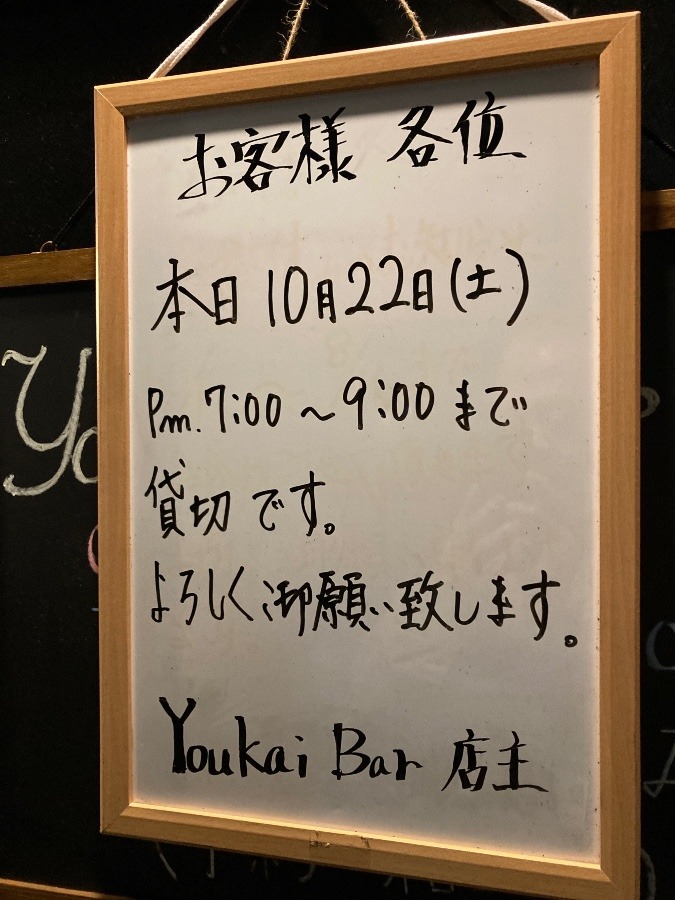 お客様 各位
本日10月22日(土)
Pm.7:00〜9:00まで
貸切です。
よろしく御願い致します。
Youkai Bar 店主